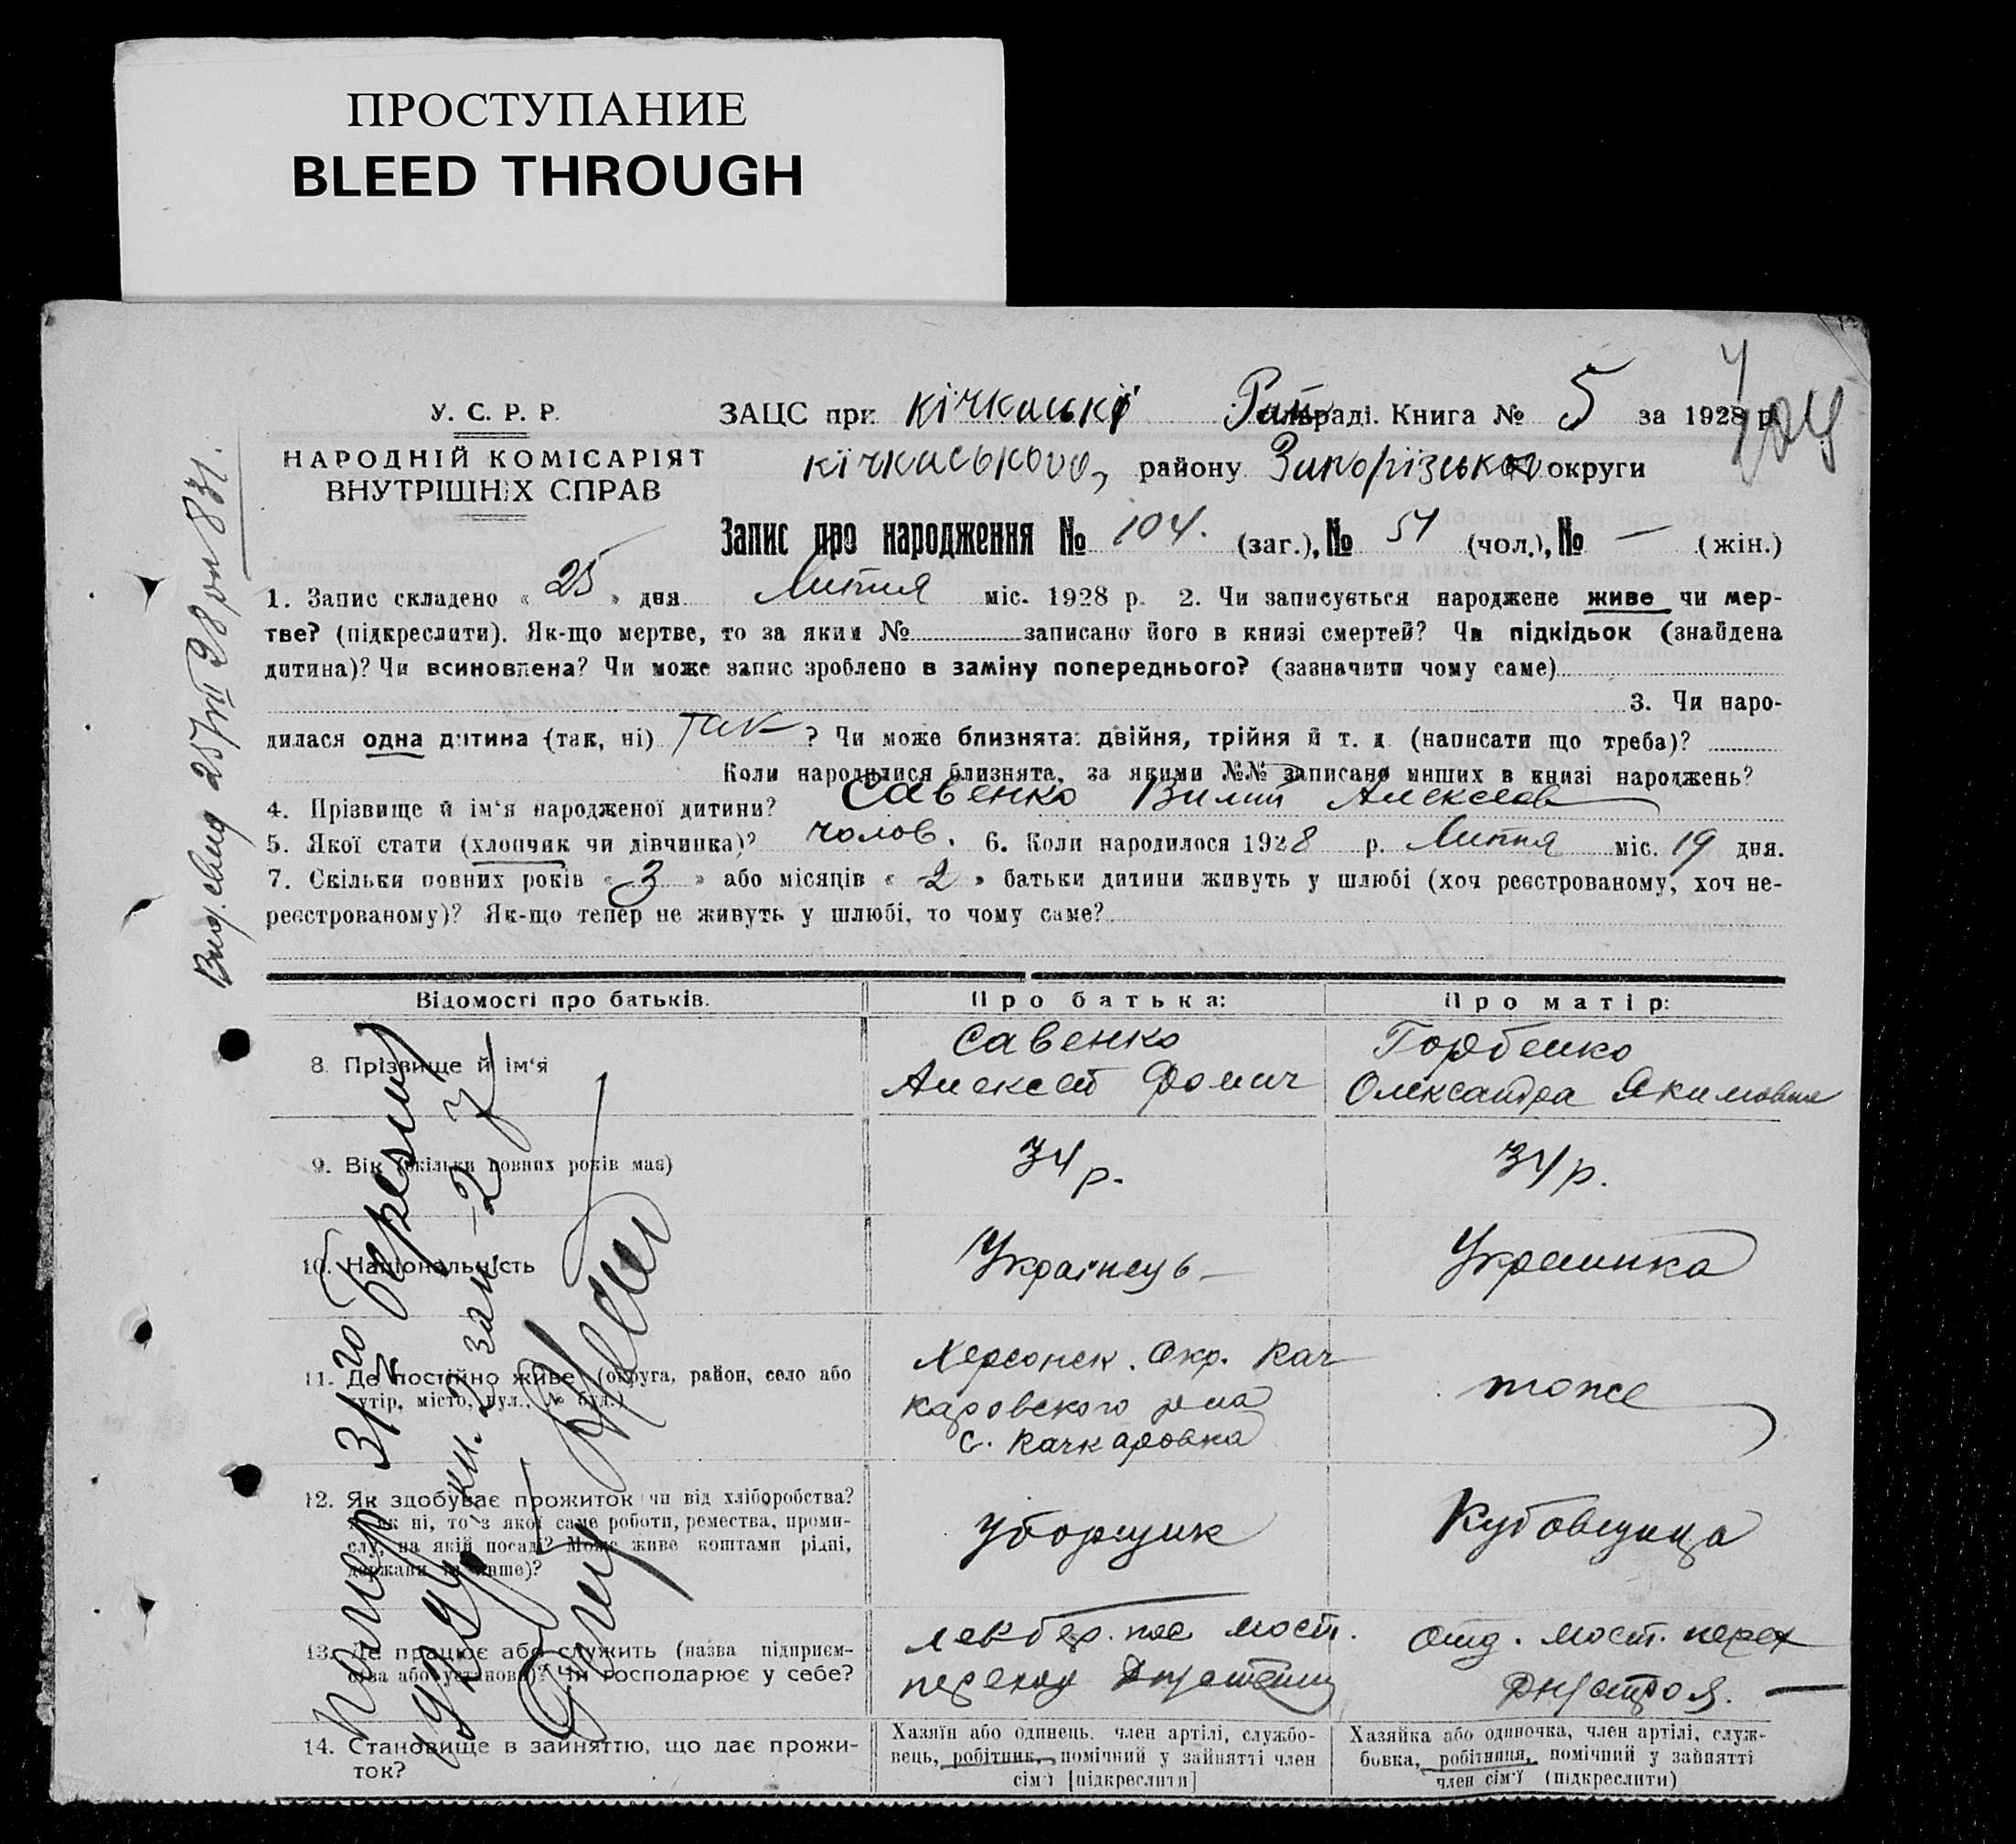 ПРОСТУПАНИЕ
BLEED THROUGH
У. С. Р. Р.
НАРОДНІЙ КОМІСАРІЯТ
ВНУТРІШНІХ СПРАВ
ЗАЦС при кічкаські Рай раді. Книга № 5 за 1928 р.
кічкаського, району Запорізької округи
Запис про народження № 104. (заг.), № 54 (чол.), № — (жін.)
1. Запис складено « 25 » дня Липня міс. 1928 р. 2. Чи записується народжене живе чи мер-
тве? (підкреслити). Як-що мертве, то за яким № записано його в книзі смертей? Чи підкідьок (знайдена
дитина)? Чи всиновлена? Чи може запис зроблено в заміну попереднього? (зазначити чому саме)
3. Чи наро-
дилася одна дитина (так, ні) так ? Чи може близнята: двійня, трійня й т. д. (написати що треба)?
Коли народилися близнята, за якими №№ записано инших в книзі народжень?
4. Прізвище й ім'я народженої дитини? Савенко Вилий Алексеев
5. Якої стати (хлопчик чи дівчинка)? чолов. 6. Коли народилося 1928 р. Липня міс. 19 дня.
7. Скільки повних років « 3 » або місяців « 2 » батьки дитини живуть у шлюбі (хоч реєстрованому, хоч не-
реєстрованому)? Як-що тепер не живуть у шлюбі, то чому саме?
Відомості про батьків. Про батька: Про матір:
8. Прізвище й ім'я
Савенко
Алексей Фомич
Горбенко
Олександра Якимовна
9. Вік (скільки повних років має) 34 р. 34 р.
10. Національність Українець — Украинка
11. Де постійно живе (округа, район, село або
хутір, місто, вул., № буд.)
Херсонск. Окр. Кач
каровского р-на
с. Качкаровка
тоже
12. Як здобуває прожиток чи від хліборобства?
як ні, то з якої саме роботи, ремества, проми-
слу, на якій посаді? Може живе коштами рідні,
держави чи инше)?
Уборщик
Кубовщица
13. Де працює або служить (назва підприєм-
ства або установи)? Чи господарює у себе?
мост.
переход
Отд. мост. перех
Днепростроя. —
14. Становище в зайняттю, що дає прожи-
ток?
Хазяїн або одинець, член артілі, службо-
вець, робітник, помічний у зайнятті член
сім'ї [підкреслити]
Хазяйка або одиночка, член артілі, служ-
бовка, робітниця, помічний у зайнятті
член сім'ї (підкреслити)